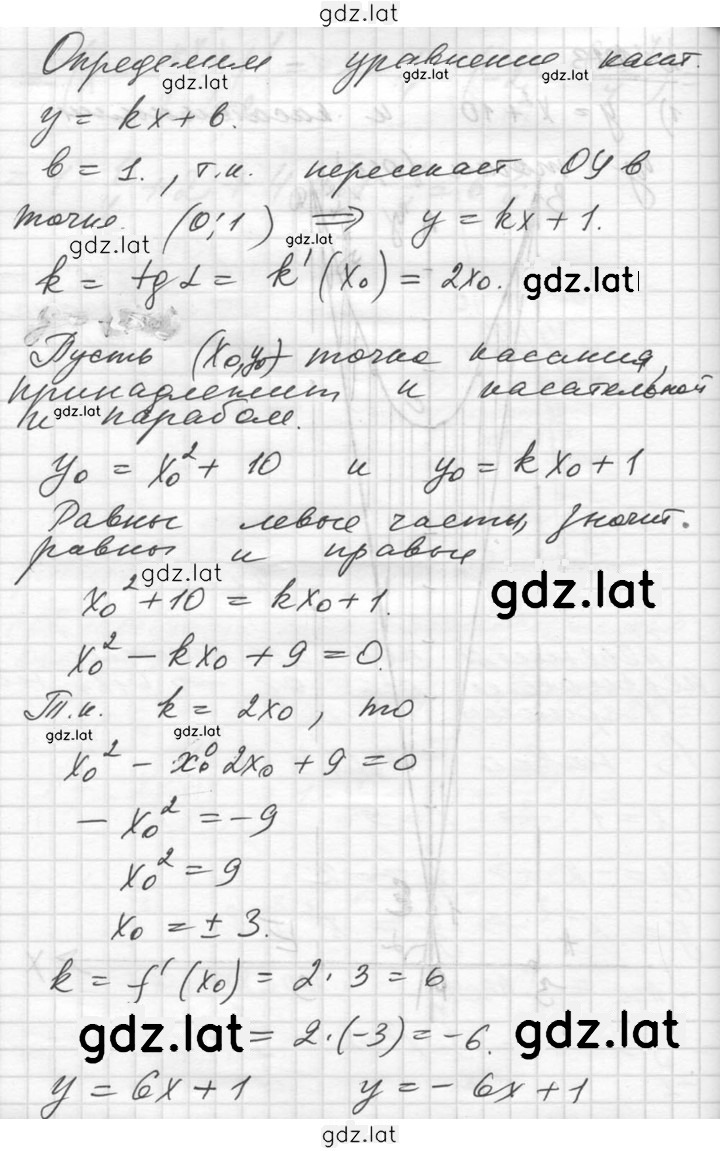 gdz.lat
Определим уравнение касат.
gdz.lat gdz.lat gdz.lat
y = kx + b.
b = 1., т.к. пересекает OY в
точке (0;1) ⟹ y = kx + 1.
gdz.lat gdz.lat
k = tg α = k'(x₀) = 2x₀. gdz.lat
Пусть (x₀,y₀) точка касания,
принадлежит и касательной
и gdz.lat параболе.
y₀ = x₀² + 10 и y₀ = kx₀ + 1
Равны левые части, значит.
равны и правые
gdz.lat
x₀² + 10 = kx₀ + 1. gdz.lat
x₀² - kx₀ + 9 = 0.
Т.к. k = 2x₀, то
gdz.lat gdz.lat
x₀² - x₀ · 2x₀ + 9 = 0
- x₀² = -9
x₀² = 9
x₀ = ± 3.
k = f'(x₀) = 2 · 3 = 6
gdz.lat = 2·(-3) = -6. gdz.lat
y = 6x + 1 y = - 6x + 1
gdz.lat